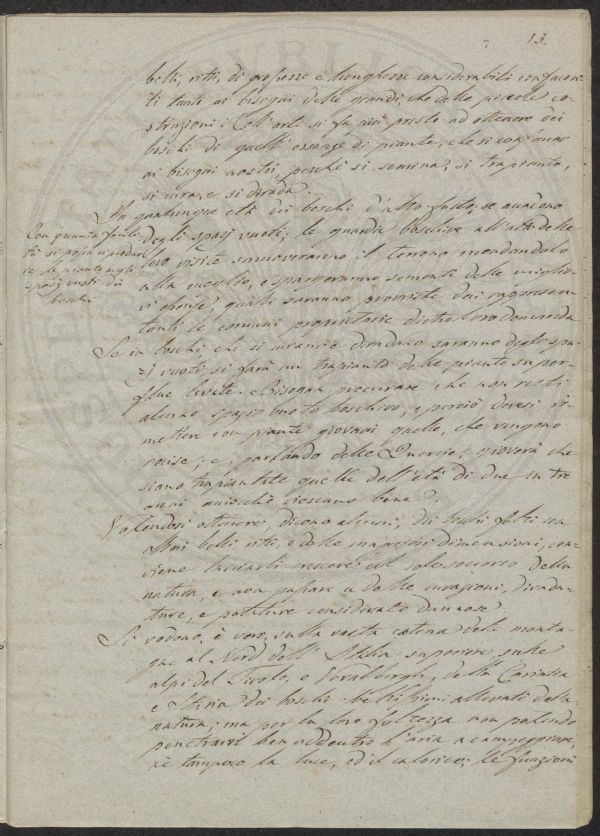 13.
belli, ritti, di grossezze e lunghezze considerabili confacen-
ti tanto ai bisogni delle grandi, che delle piccole co-
struzioni. Coll'arte si fa più presto ad ottenere dei
boschi di quell'essenze di piante, che si confanno
ai bisogni nostri, perchè si semina, si trapianta,
si cura, e si dirada.
In qualunque età dei boschi d'alto fusto, se accadono
degli spazi vuoti, le guardie boschive all'atto delle
loro visite smuoveranno il terreno mondandolo
alla meglio, e spargeranno semente delle miglio-
ri essenze, quali saranno provviste dai rappresen-
tanti le comuni proprietarie dietro loro domanda
Con quanta facili-
tà si possa riprodur-
re le piante negli
spazj vuoti dei
boschi
Se in boschi, che si curano e diradano saranno degli spa-
zj vuoti, si farà un trapianto delle piante super-
flue levate. Bisogna procurare che non resti
alcuno spazio vuoto boschivo, e perciò devesi ri-
mettere con piante giovani quelle, che vengono
recise: e, parlando delle Quercie, gioverà che
siano trapiantate quelle dell'età di due in tre
anni acciochè riescano bene.
Volendosi ottenere, dicono alcuni, dei boschi folti con
alberi belli, ritti, e delle maggiori dimensioni, con-
viene lasciarli crescere col solo soccorso della
natura, e non passare a delle curazioni, dirada-
ture, e potature considerate dannose.
Si vedono, è vero, sulla vasta catena delle monta-
gne al Nord dell'Italia superiore sulle
alpi del Tirolo, e Voralbergh, della Carintia
e Stiria dei boschi bellissimi allevati dalla
natura; ma per la loro foltezza non potendo
penetrarvi ben addentro l'aria a campeggiare,
nè tampoco la luce, ed il calorico; le funzioni